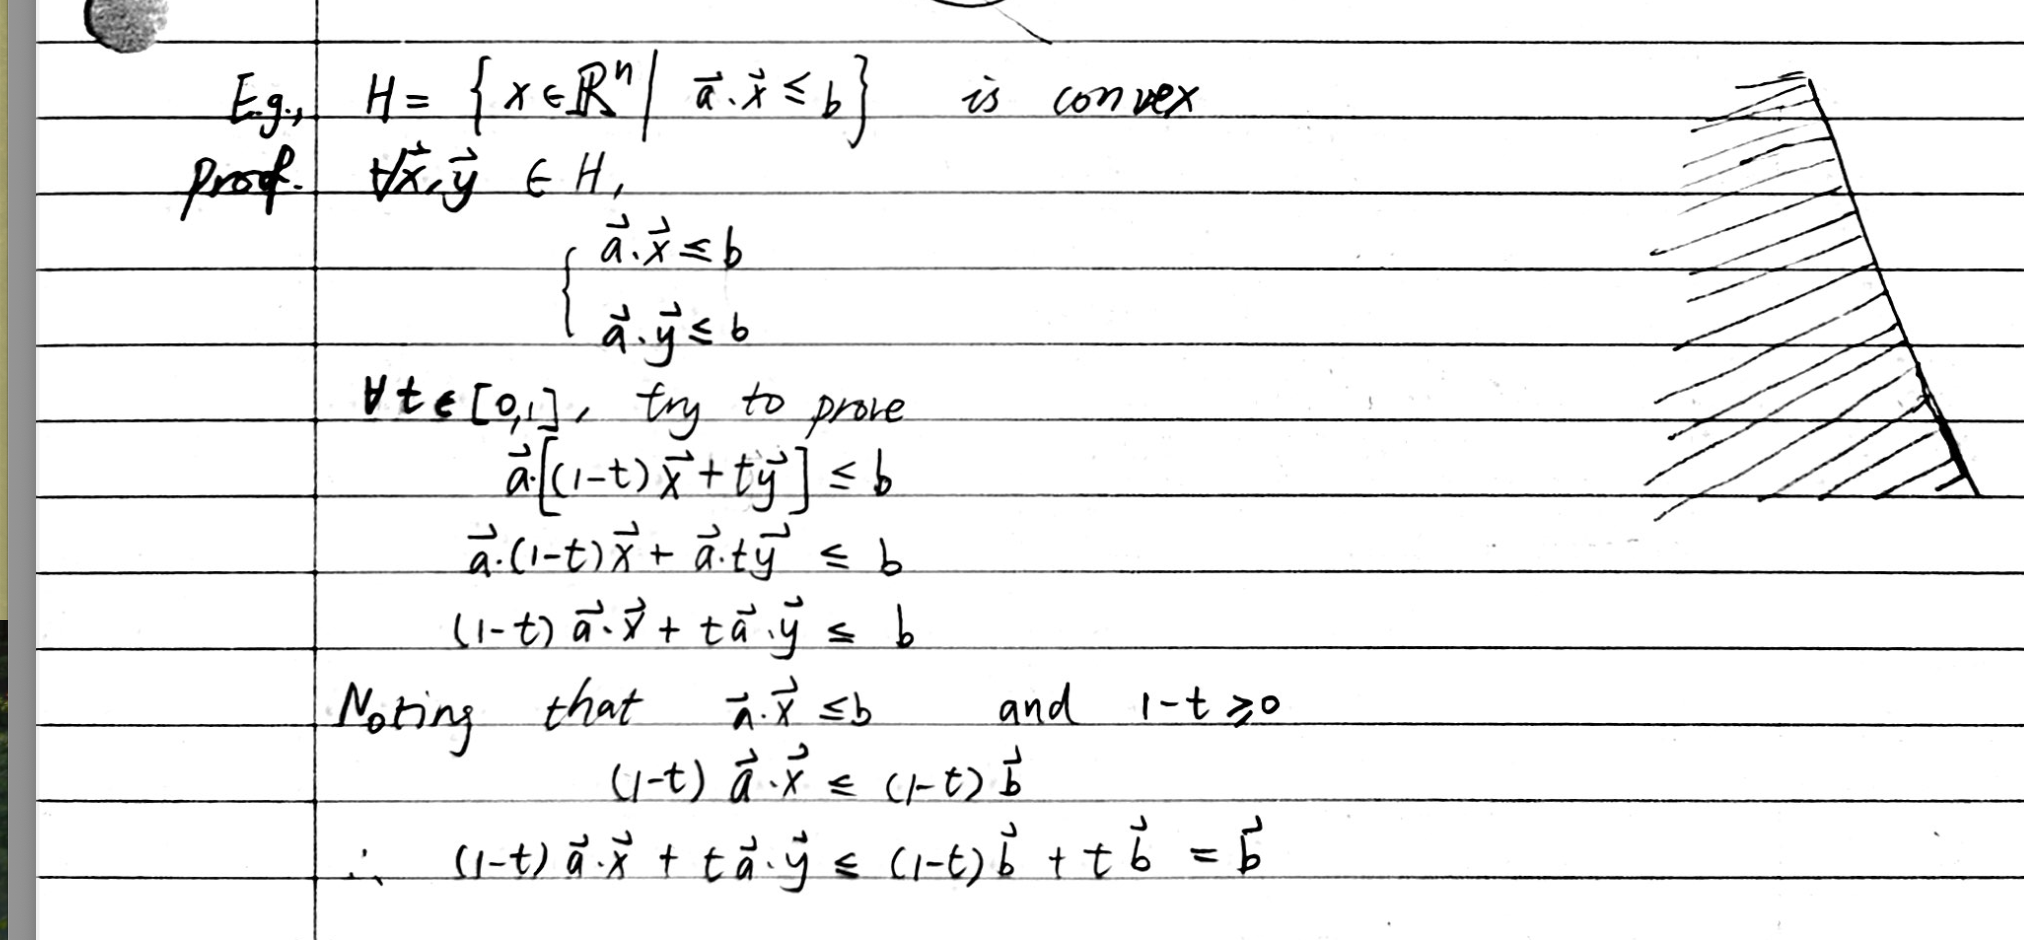 E.g., H = { x ∈ ℝⁿ | a⃗·x⃗ ≤ b } is convex
Proof. ∀x⃗, y⃗ ∈ H,
{ a⃗·x⃗ ≤ b
a⃗·y⃗ ≤ b
∀ t ∈ [0,1], try to prove
a⃗·[(1-t)x⃗ + ty⃗] ≤ b
a⃗·(1-t)x⃗ + a⃗·ty⃗ ≤ b
(1-t) a⃗·x⃗ + ta⃗·y⃗ ≤ b
Noting that a⃗·x⃗ ≤ b and 1-t ≥ 0
(1-t) a⃗·x⃗ ≤ (1-t) b⃗
∴ (1-t) a⃗·x⃗ + ta⃗·y⃗ ≤ (1-t) b⃗ + t b⃗ = b⃗